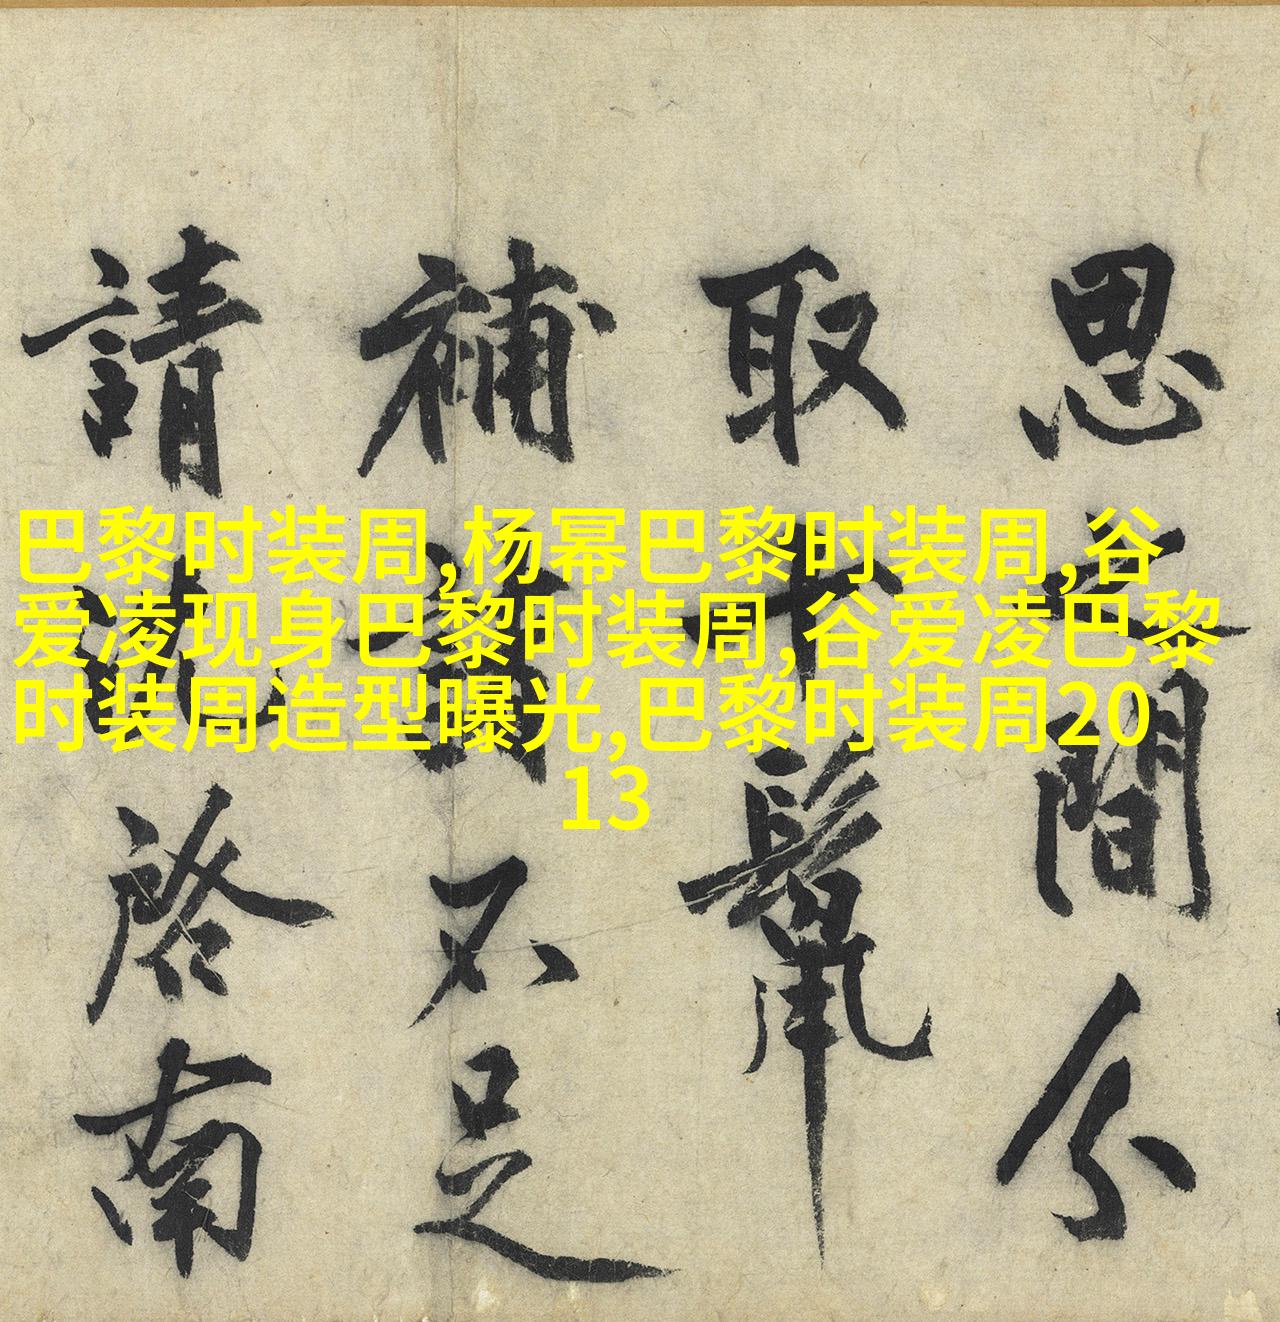 巴黎时装周,杨幂巴黎时装周,谷
爱凌现身巴黎时装周,谷爱凌巴黎
时装周造型曝光,巴黎时装周20
13
思之間分
取十鬣
補諸不足
請沈啓南